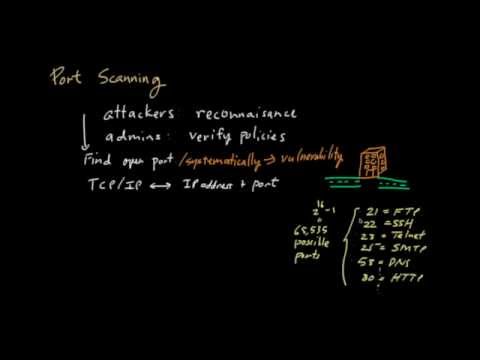 Port Scanning
attackers reconnaisance
admins: verify policies
Find open port /systematically → vulnerability
TCP/IP ↔ IP address + port
2^16-1
65,535
possible
ports
21 = FTP
22 = SSH
23 = Telnet
25 = SMTP
53 = DNS
80 = HTTP